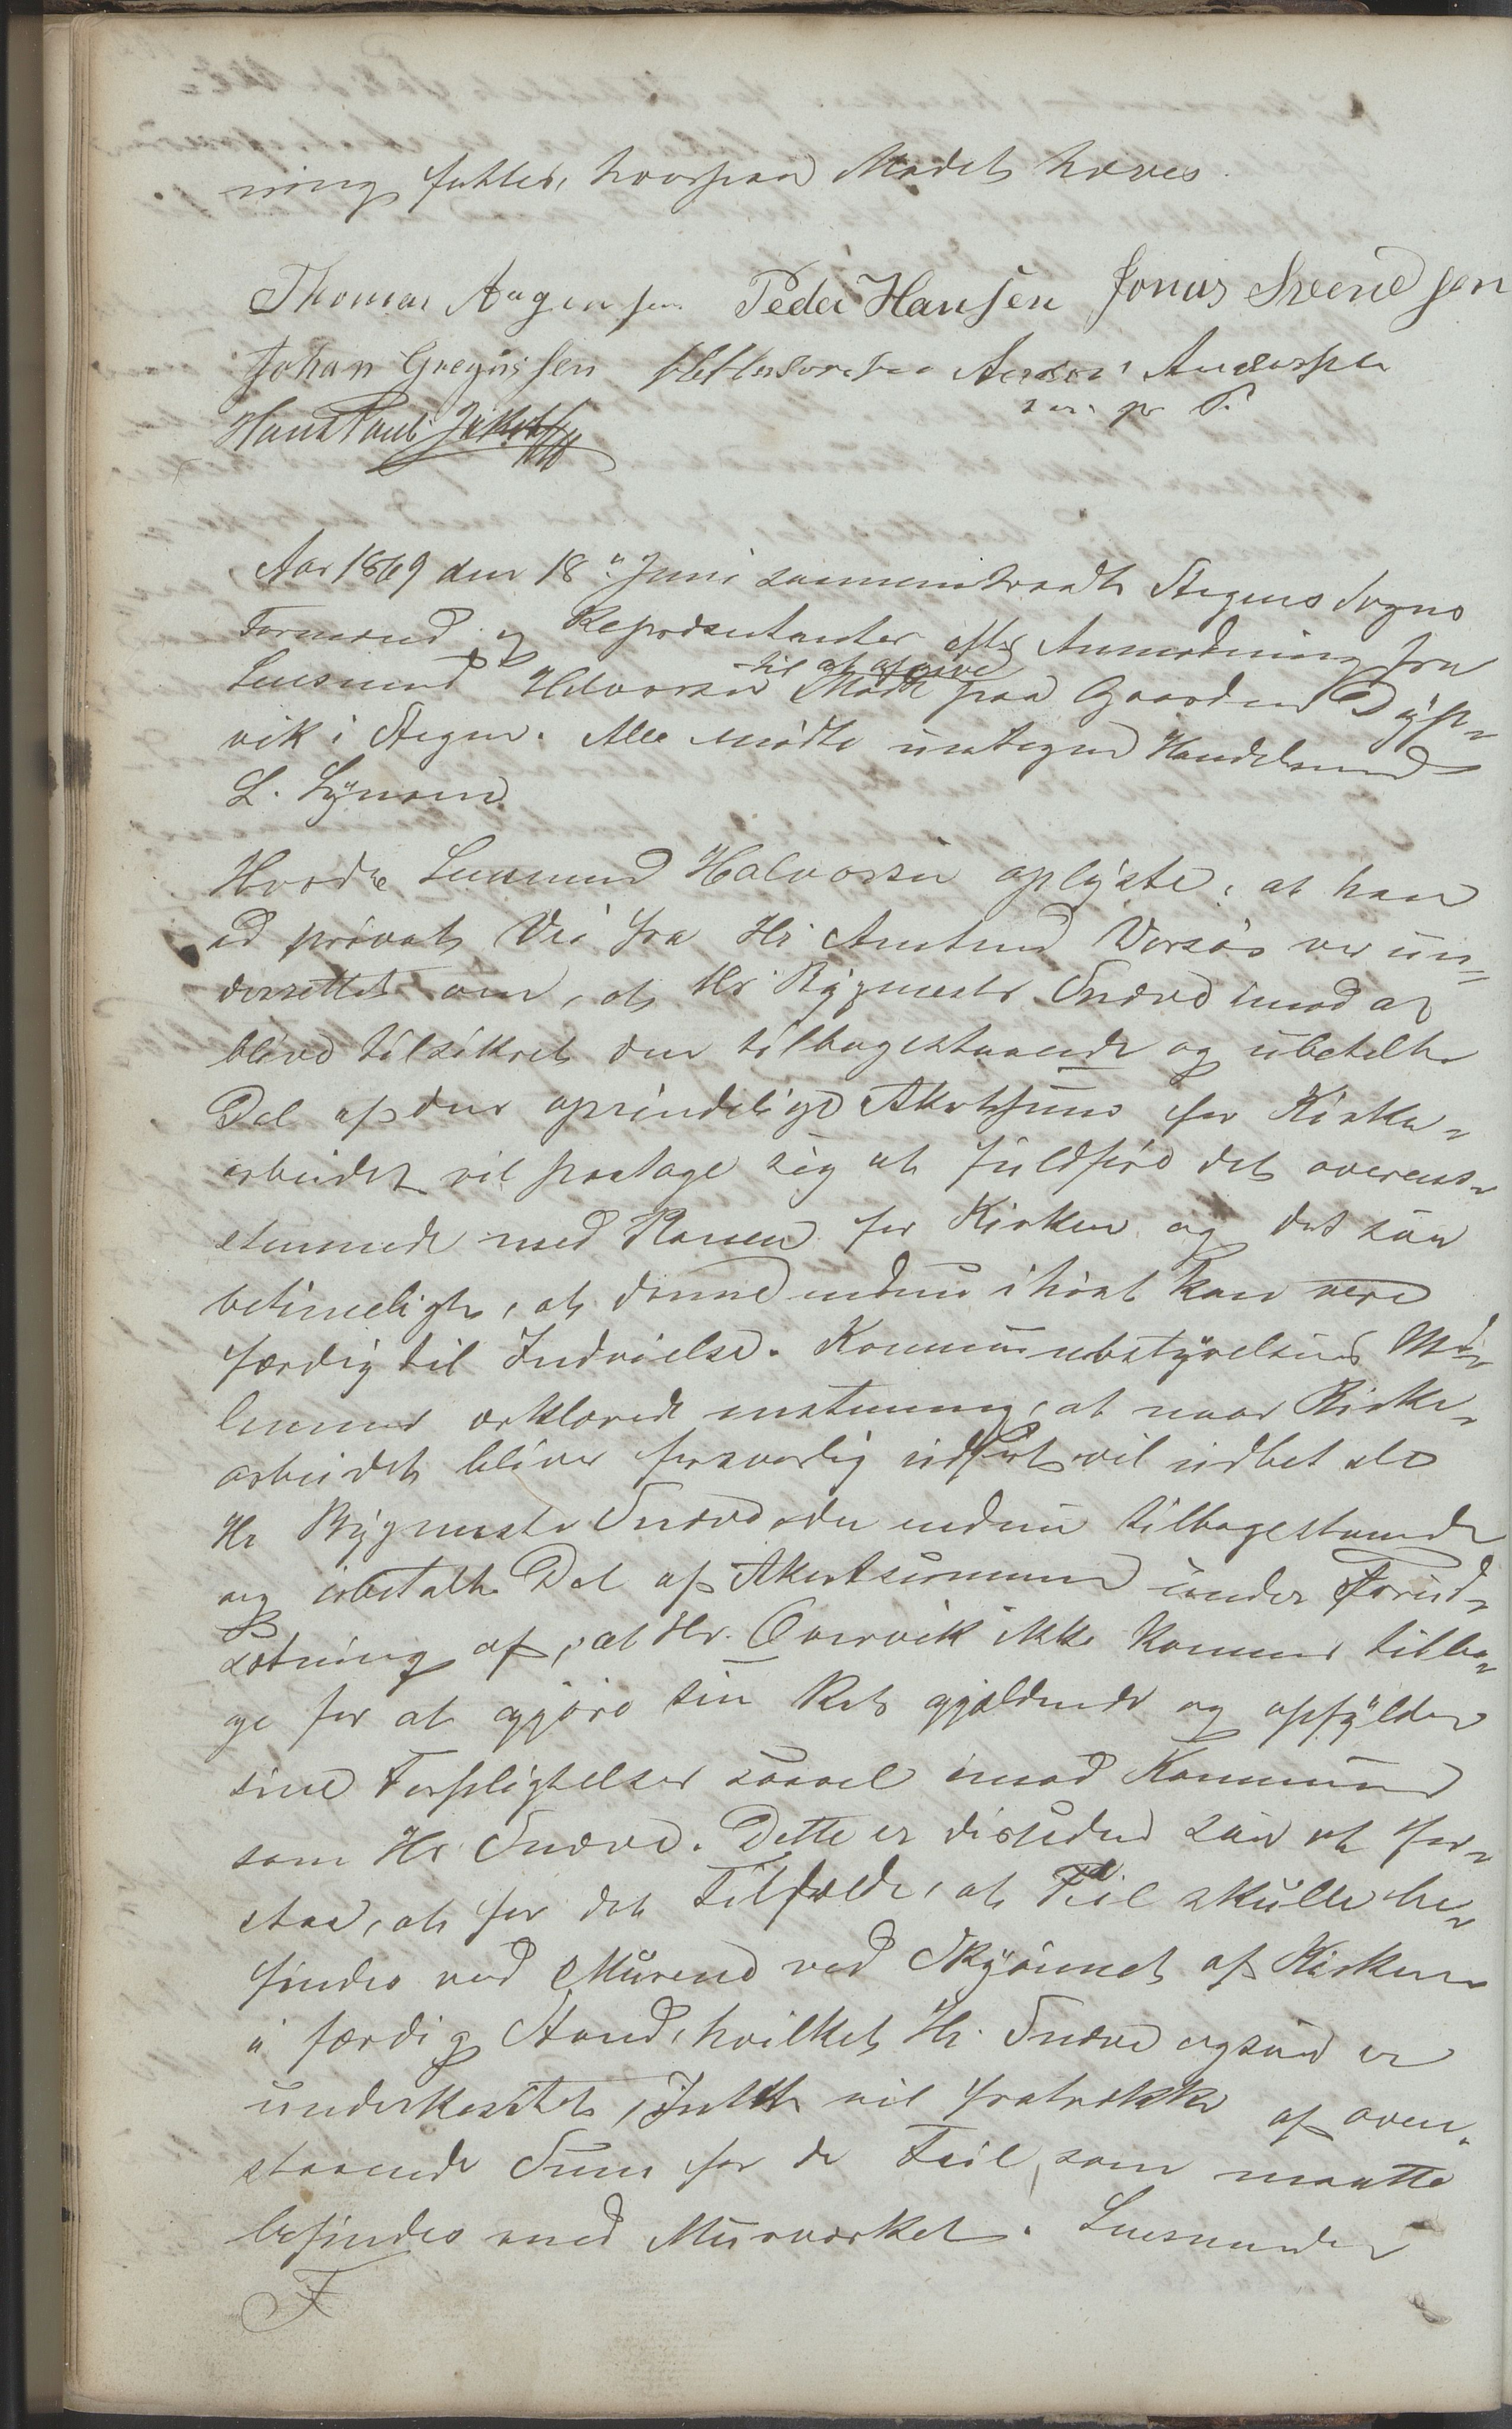 ning fattes, hvorpaa Mødet hæves.
Thomas Aagensen Peder Hansen Jonas Svendsen
Johan Gregussen Anton Anderssen
Hans Pauls
Aar 1869 den 18de Juni sammentraadte Stegens Sogns
Formænd og Repræsentanter efter Anmodning fra
Lensmand Halvorsen til at afgive Møde paa Gaarden Dyp=
vik i Stegen. Alle mødte undtagen Handelsmand
L.
Hvorda Lensmand Halvorsen oplyste, at han
ad privat Vei fra Hr Amtmd Worsøe var un=
derrettet om, at Hr Bygmester Sneeve imod at
blive tilsikret den tilbagestaaende og ubetalte
Del af den oprindelige Akortsum for Kirke=
arbeidet vil paatage sig at fuldføre det overens=
stemmende med Planen for Kirken og det saa
betimeligt, at denne endnu i høst kan være
færdig til Indvielse. Kommunebestyrelsens Med=
lemmer erklærede enstemmig, at naar Kirke=
arbeidet bliver forsvarlig udført vil udbetale
Hr Bygmester Snæve den endnu tilbagestaaende
og ubetalte Del af Akortsummen under Forud=
sætning af, at Hr. Overvik ikke kommer tilba=
ge for at gjøre sin Ret gjældende og opfylder
sine Forpligtelser saavel imod Kommunen
som Hr Snæve. Dette er desuden saa at for=
staa, at for det Tilfælde, at Feil skulle be=
findes ved Murene ved Skjønnet af Kirken
i færdig Stand, hvilket Hr. Snæve ogsaa er
underkastet, vil fratrække af oven=
staaende Sum for de Feil, som maatte
befindes med Murværket. Lensmanden
F